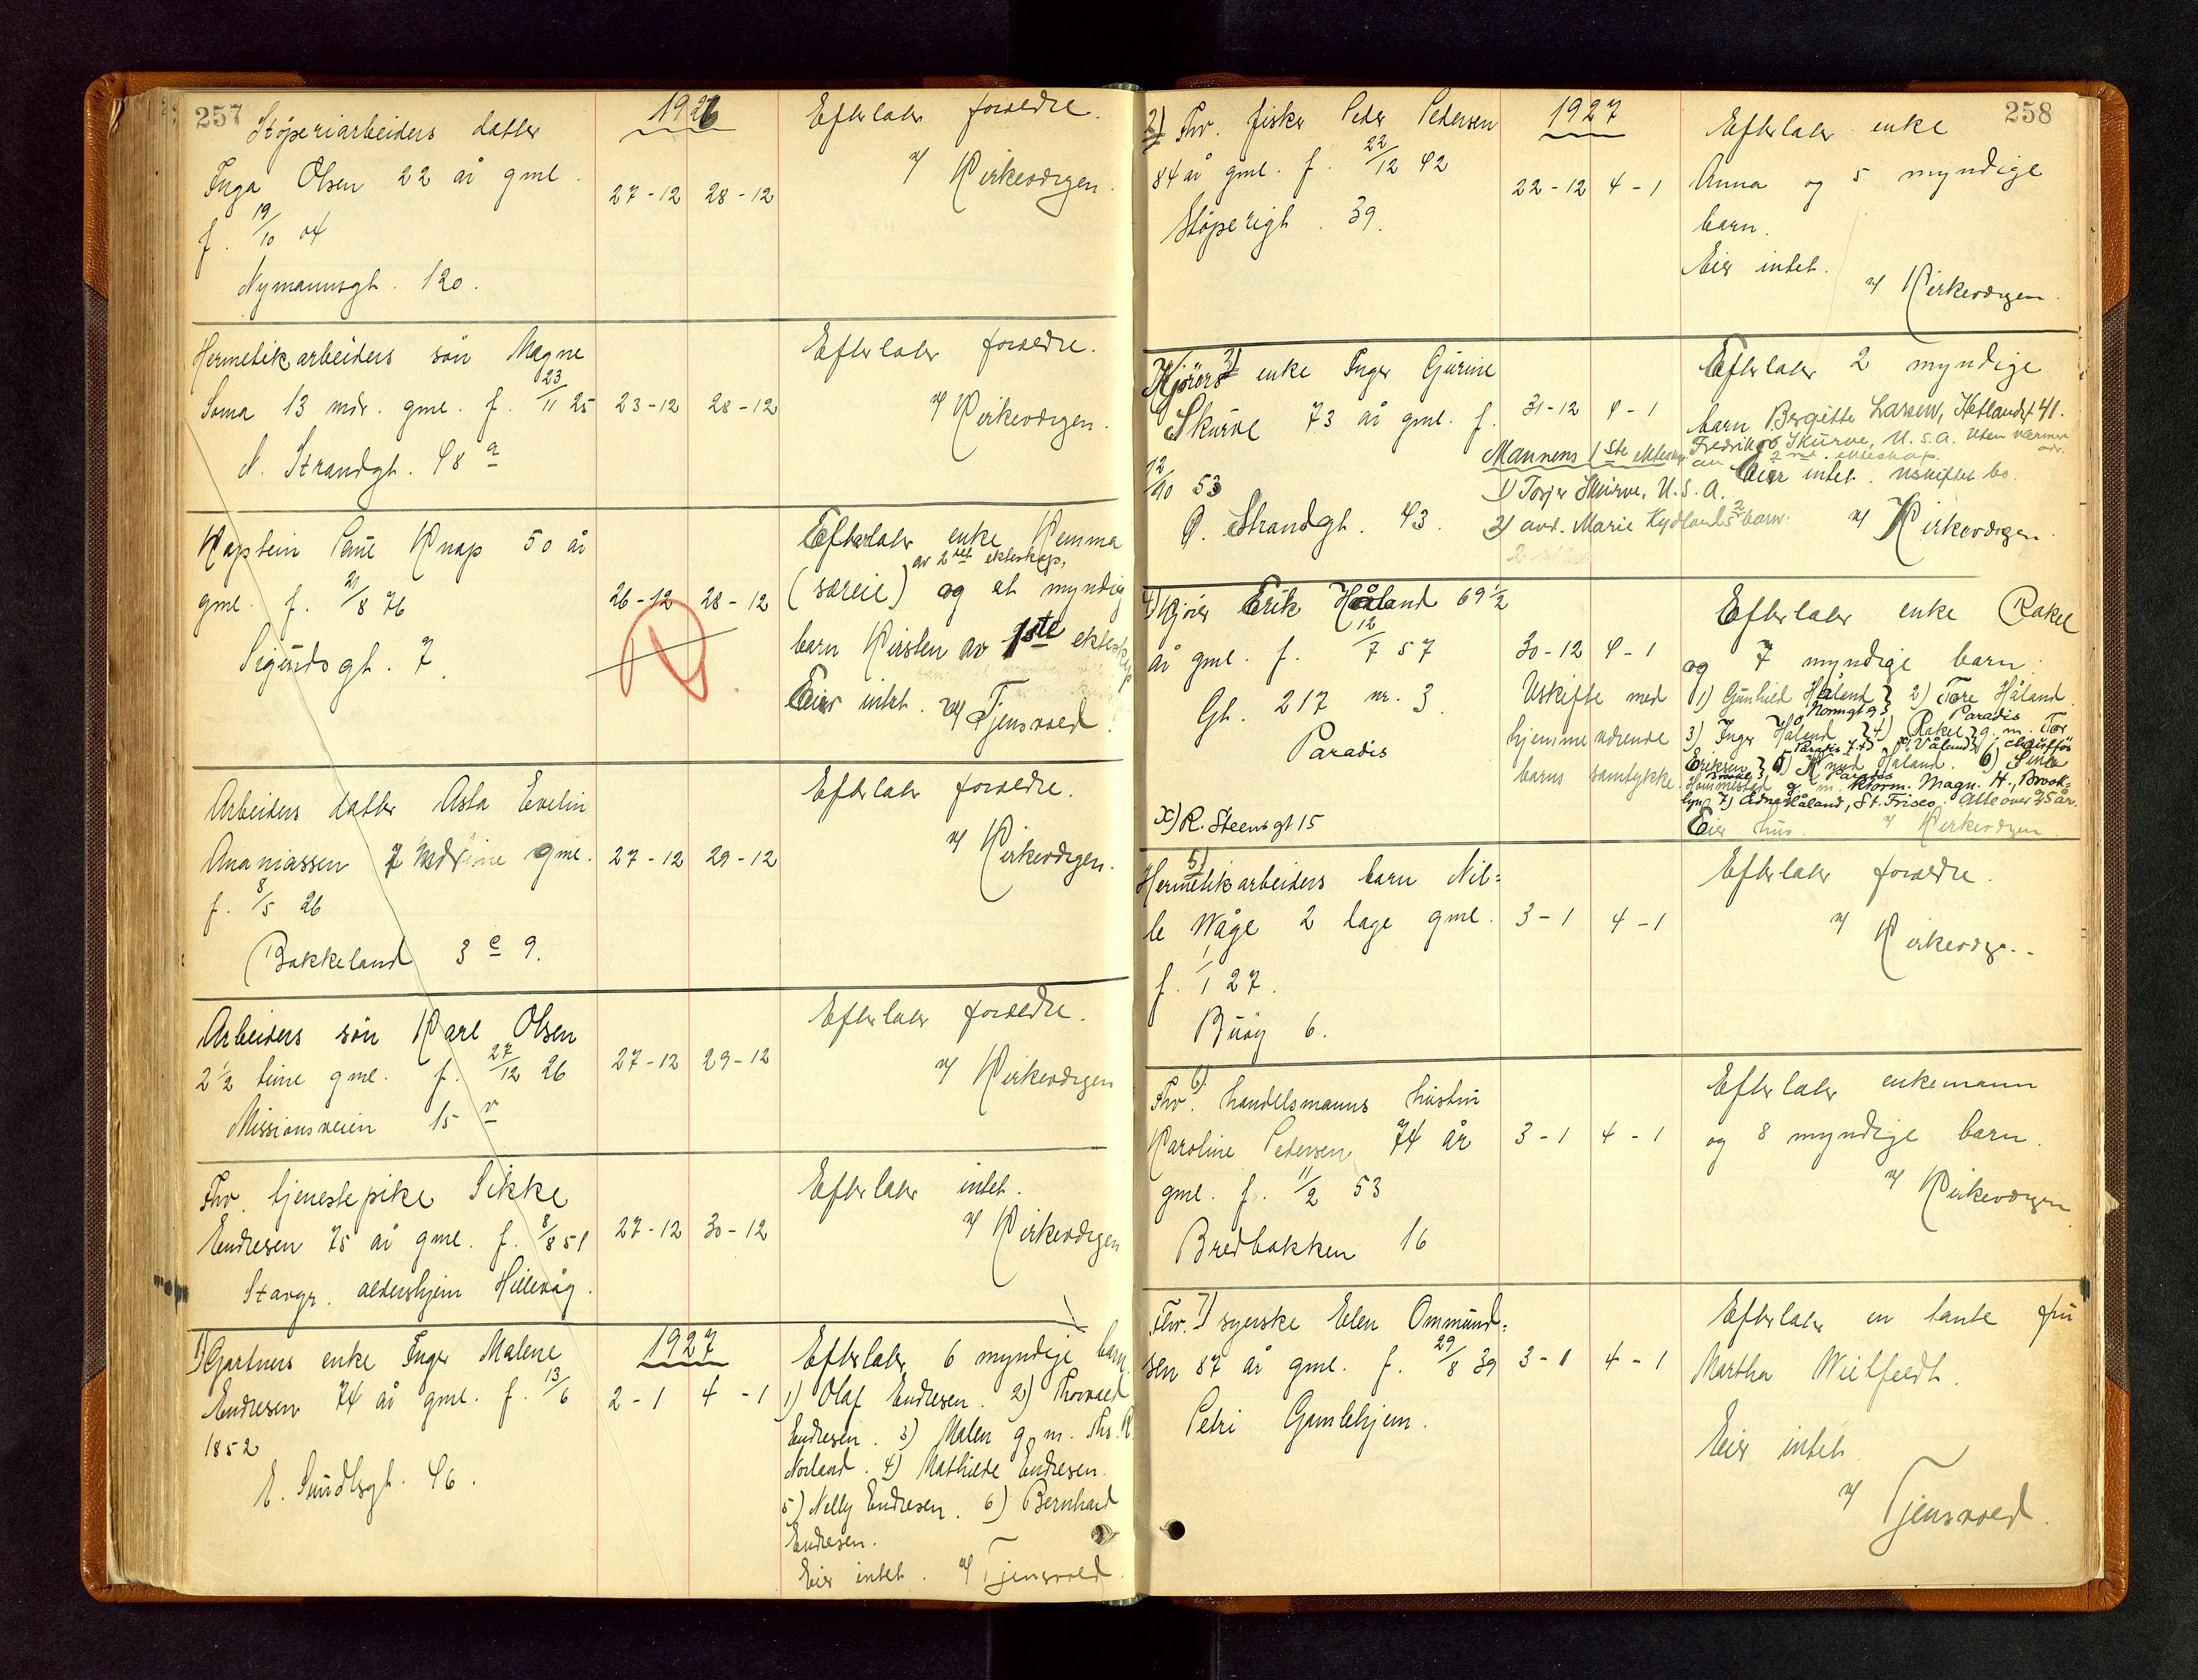 257
1926
Støperiarbeiders datter
Inga Olsen 22 år gml.
f. 19/10 04
Nymannsgt. 120.
27-12 28-12
Efterlater foreldre.
v/ Kirkevergen.
Hermetikarbeiders søn Magne
Soma 13 mdr. gml. f. 23/11 25
N. Strandgt. 48 a
23-12 28-12
Efterlater foreldre.
v/ Kirkevergen.
Kaptein Paul Knap 50 år
gml. f. 21/8 76
Sigurdsgt. 7.
26-12 28-12
Efterlater enke Hemma
av 2det ekteskap,
(særeie) og et myndig
barn Kirsten av 1ste ekteskap
Eier intet. v/ Tjensvold
Arbeiders datter Asta Evelin
Ananiassen 7 mdr gml.
f. 8/5 26
Bakkeland 3 e 9.
27-12 29-12
Efterlater foreldre.
v/ Kirkevergen.
Arbeiders søn Karl Olsen
2 1/2 time gml. f. 27/12 26
Missionsveien 15 v
27-12 29-12
Efterlater foreldre.
v/ Kirkevergen
Fhv. tjenestepike Sikke
Endresen 75 år gml. f. 8/8 51
Stavgr. aldershjem Hillevåg.
27-12 30-12
Efterlater intet.
v/ Kirkevergen
1927
1) Gartners enke Inger Malene
Endresen 74 år gml. f. 13/6
1852
E. Sundtsgt. 46.
2-1 4-1
Efterlater 6 myndige barn.
1) Olaf Endresen. 2) Thorvald
Endresen. 3) Malen g. m. Ths. R.
Norland. 4) Mathilde Endresen.
5) Nelly Endresen. 6) Bernhard
Endresen.
Eier intet. v/ Tjensvold.
258
1927
2) Fhv. fisker Peder Pedersen
84 år gml. f. 22/12 42
Støperigt. 39.
22-12 4-1
Efterlater enke
Anna og 5 myndige
barn.
Eier intet.
v/ Kirkevergen.
3) Kjørers enke Inger Gurine
Skurve 73 år gml. f.
12/10 53
Ø. Strandgt. 43.
31-12 4-1
Mannens 1ste ekteskap
1) Torjer Skurve, U.S.A.
2) avd. Marie Kydlands 2 barn:
Efterlater 2 myndige
barn Birgitte Larsen, Hetlandsgt 41.
Fredrik Skurve, U.S.A. uten nærmere adr.
av 2net ekteskap.
Eier intet. uskiftet bo.
v/ Kirkevergen.
4) Kjører Erik Håland 69 1/2
år gml. f. 12/7 57
Gt. 217 nr. 3.
Paradis
x) R. Steensgt 15
30-12 4-1
Uskifte med
hjemmeværende
barns samtykke.
Efterlater enke Rakel
og 7 myndige barn.
1) Gunhild Håland 2) Tore Håland
Normgt 93 Paradis
3) Inger Håland 4) Rakel g. m. Tor
Eriksen 5) Knud Håland. 6) Sina
Hommestad g. m. Magn. H., Brook-
lyn 7) Edna Håland, St. Frisco. Alle over 25 år.
Eier hus. v/ Kirkevergen
5) Hermetikarbeiders barn Nil-
le Våge 2 dage gml.
f. 1/1 27.
Buøy 6.
3-1 4-1
Efterlater foreldre.
v/ Kirkeverge..
6) Fhv. handelsmanns hustru
Karoline Pedersen 74 år
gml. f. 11/2 53
Bredbakken 16
3-1 4-1
Efterlater enkemann
og 8 myndige barn.
v/ Kirkevergen
7) Fhv. syerske Elen Ommund-
sen 87 år gml. f. 29/8 39
Petri Gamlehjem.
3-1 4-1
Efterlater en tante fru
Martha Wielfeldt.
Eier intet
v/ Tjensvold.